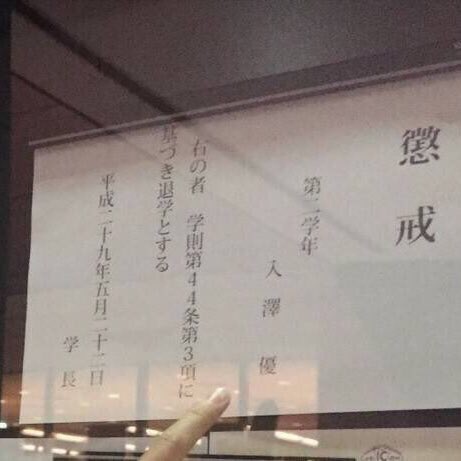 懲戒
第二学年
入澤 優
右の者 学則第44条第3項に
基づき退学とする
平成二十九年五月二十二日
学長